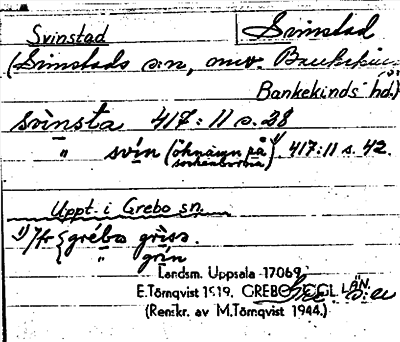 Svinstad Svinstad
(Svinstads s:n,
Bankekinds hd.)
svinsta 417:11 s. 28
" svin (öknamn på sockenborna)¹⁾ 417:11 s. 42.
Uppt. i Grebo sn.
1) Jfr { grébo gris.
" grin
Landsm. Uppsala 17069,
E. Törnqvist 1919. GREBO, ÖGL. LÄN.
(Renskr. av M. Törnqvist 1944.)